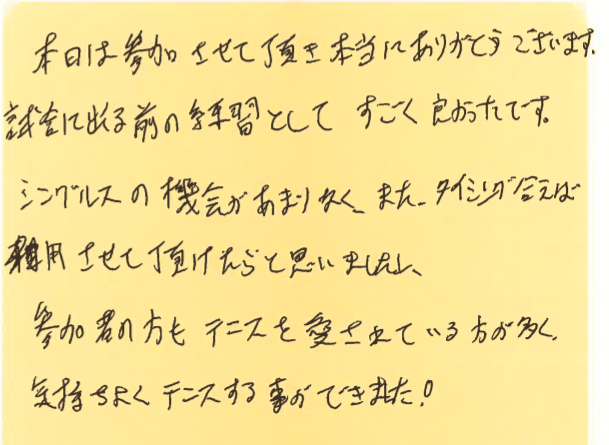 本日は参加させて頂き本当にありがとうございます。
試合に出る前の練習として すごく良かったです。
シングルスの機会があまり多く、また、タイミング合えば
利用させて頂けたらと思いました。
参加者の方もテニスを愛されている方が多く、
気持ちよくテニスする事ができました!